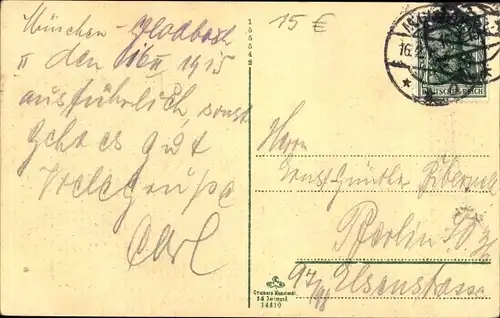 München - Gladbach
II den 16 II 1915
ausführlich, sonst
geht es gut
Viele Grüße
Carl
155542
15 €
16.2.
DEUTSCHES REICH
Herrn
Ernst Günther
Berlin SO 36
97/98 Elsenstrasse
14410